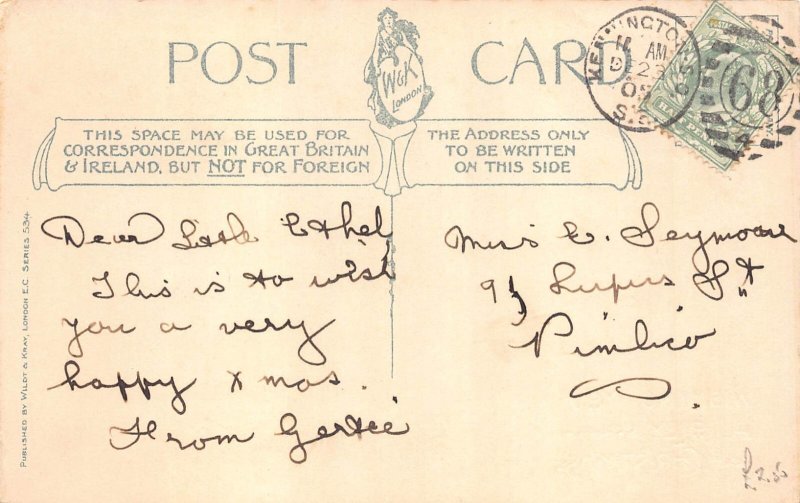 POST CARD
W&K
LONDON
THIS SPACE MAY BE USED FOR
CORRESPONDENCE IN GREAT BRITAIN
& IRELAND, BUT NOT FOR FOREIGN
THE ADDRESS ONLY
TO BE WRITTEN
ON THIS SIDE
KENNINGTON
AM
S.E.
68
4
Dear Little Ethel
This is to wish
you a very
happy Xmas.
From Gertie
Miss E. Seymour
Lupus St
Pimlico
PUBLISHED BY WILDT & KRAY, LONDON E.C. SERIES 534